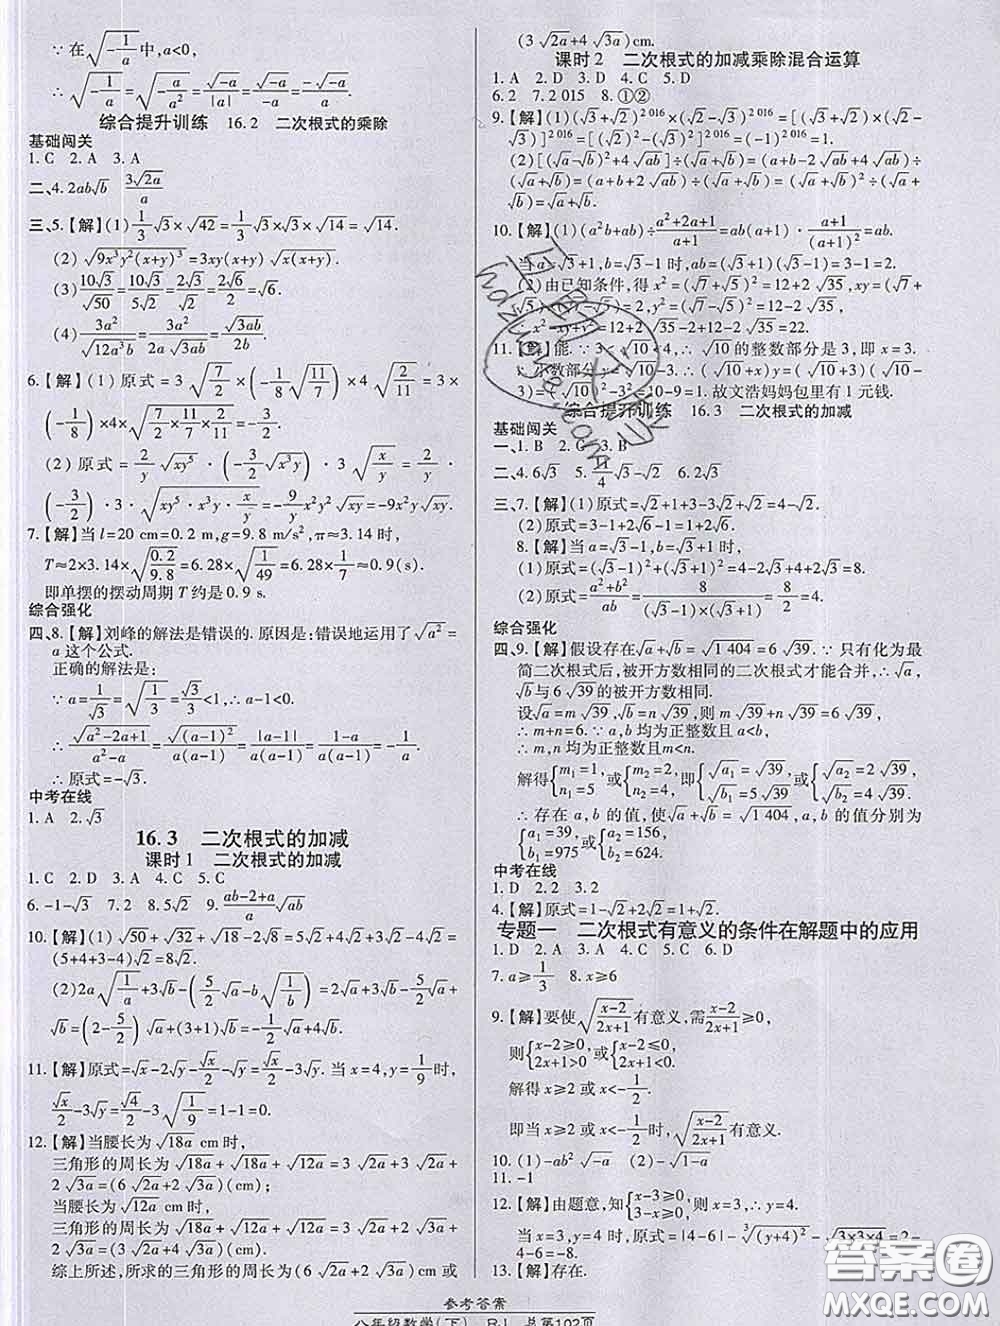 ∵在√(-1/a)中,a<0,
∴√(-1/a)=√(-a/a²)=√(-a)/|a|=√(-a)/(-a)=-√(-a)/a.
综合提升训练 16.2 二次根式的乘除
基础闯关
1. C 2. A 3. A
二、4. 2ab√b 3√(2a)/a
三、5.【解】(1)1/3√3×√42=1/3√3×√3×√14=√14.
(2)√(9x³y²(x+y)³)=3xy(x+y)√(x(x+y)).
(3)10√3/√50=10√3/5√2=2√3/√2=2√6/2=√6.
(4)3a²/√(12a³b)=3a²/2a√(3ab)=√(3ab)/2b.
6.【解】(1)原式=3√(7/2)×(-1/8√(11/7))×4√(2/11)=3×
(-1/8)×4×√(7/2×11/7×2/11)=-3/2.
(2)原式=2/y√(xy⁵)·(-3/2√(x³y))·3√(x/y)=2/y·
(-3/2)·3·√(xy⁵·x³y·x/y)=-9/y x²y²√(xy)=-9x²y√(xy).
7.【解】当l=20 cm=0.2 m,g=9.8 m/s²,π≈3.14时,
T≈2×3.14×√(0.2/9.8)=6.28×√(1/49)=6.28×1/7≈0.9(s).
即单摆的摆动周期T约是0.9 s.
综合强化
四、8.【解】刘峰的解法是错误的. 原因是:错误地运用了√(a²)=
a这个公式.
正确的解法是:
∵a=1/√3=√(1/3)=√3/3<1,∴a-1<0.
∴√(a²-2a+1)/(a(a-1))=√((a-1)²)/(a(a-1))=|a-1|/(a(a-1))=-1/a.
∴原式=-√3.
中考在线
1. A 2. √3
16.3 二次根式的加减
课时1 二次根式的加减
1. C 2. D 3. C 4. C 5. C
6. -1-√3 7. 2 8. 5√2 9. (ab-2+a)/a √(ab)
10.【解】(1)√50+√32+√18-2√8=5√2+4√2+3√2-4√2=
(5+4+3-4)√2=8√2.
(2)2a√(1/a)+3√b-(5/2√a-b√(1/b))=2√a+3√b-5/2√a+
√b=(2-5/2)√a+(3+1)√b=-1/2√a+4√b.
11.【解】原式=√x-2√y-√x/2-√y=√x/2-3√y. 当x=4,y=1/9时,
√x/2-3√y=√4/2-3√(1/9)=1-1=0.
12.【解】当腰长为√(18a) cm时,
三角形的周长为√(18a)+√(18a)+√(12a)=3√(2a)+3√(2a)+
2√(3a)=(6√(2a)+2√(3a))(cm);
当腰长为√(12a) cm时,
三角形的周长为√(18a)+√(12a)+√(12a)=3√(2a)+2√(3a)+
2√(3a)=(3√(2a)+4√(3a))(cm).
综上所述,所求的三角形的周长为(6√(2a)+2√(3a))cm或
(3√(2a)+4√(3a))cm.
课时2 二次根式的加减乘除混合运算
1. A 2. D 3. D 4. C 5. D
6. 2 7. 2 015 8. ①②
9.【解】(1)(√3+√2)^2 016×(√2-√3)^2 016=[(√3+√2)×(√2-
√3)]^2 016=(-1)^2 016=1.
(2)[(√a-√b)²+4√(ab)]÷(√a+√b)=(a+b-2√(ab)+4√(ab))÷
(√a+√b)=(a+b+2√(ab))÷(√a+√b)=(√a+√b)²÷(√a+
√b)=√a+√b.
10.【解】(1)(a²b+ab)÷(a²+2a+1)/(a+1)=ab(a+1)·(a+1)/(a+1)²=ab.
当a=√3+1,b=√3-1时,ab=(√3+1)(√3-1)=3-1=2.
(2)由已知条件,得x²=(√7+√5)²=12+2√35,xy=(√7+
√5)(√7-√5)=2,y²=(√7-√5)²=12-2√35,
∴x²-xy+y²=12+2√35-2+12-2√35=22.
11.【解】能.∵3<√10<4,∴√10的整数部分是3,即x=3.
∴小数部分y=√10-3.∴(√10+x)y=(√10+3)(√10-3)
=(√10)²-3²=10-9=1. 故文浩妈妈包里有1元钱.
综合提升训练 16.3 二次根式的加减
基础闯关
一、1. B 2. C 3. B
二、4. 6√3 5. 5/4√3-√2 6. 2√3
三、7.【解】(1)原式=√2+1+3-3√2+√2=4-√2.
(2)原式=1-5+1+2√6=-3+2√6.
8.【解】当a=√3-1,b=√3+1时,
(1)原式=(√3-1)²+(√3+1)²=4-2√3+4+2√3=8.
(2)原式=(a²+b²)/ab=8/((√3-1)×(√3+1))=8/2=4.
综合强化
四、9.【解】假设存在√a+√b=√(1 404)=6√39.∵只有化为最
简二次根式后,被开方数相同的二次根式才能合并,∴√a,
√b与6√39的被开方数相同.
设√a=m√39,√b=n√39,则m√39+n√39=6√39,
∴m+n=6.∵a,b均为正整数且a<b,
∴m,n均为正整数且m<n.
解得{m₁=1, n₁=5或{m₂=2, n₂=4,即{√a₁=√39, √b₁=5√39或{√a₂=2√39, √b₂=4√39.
∴存在a,b的值,使√a+√b=√(1 404),a,b的值分别为
{a₁=39, b₁=975或{a₂=156, b₂=624.
中考在线
1. D 2. 2 3. 2
4.【解】原式=1-√2+2√2=1+√2.
专题一 二次根式有意义的条件在解题中的应用
1. D 2. A 3. A 4. C 5. C 6. D
7. a≥1/3 8. x≥6
9.【解】要使√((x-2)/(2x+1))有意义,需(x-2)/(2x+1)≥0,
则{x-2≥0, 2x+1>0或{x-2≤0, 2x+1<0.
解得x≥2或x<-1/2.
即当x≥2或x<-1/2时,√((x-2)/(2x+1))有意义.
10. (1)-ab²√(-a) (2)-√(1-a)
11. -1
12.【解】由题意,知{x-3≥0, 3-x≥0,则x=3,∴y=4.
当x=3,y=4时,原式=|4-6|-∛((y+4)²)-√(3×3×4)=2-
4-6=-8.
13.【解】存在.
参考答案
八年级数学(下) RJ 总第102页
答案圈
MXQE.COM